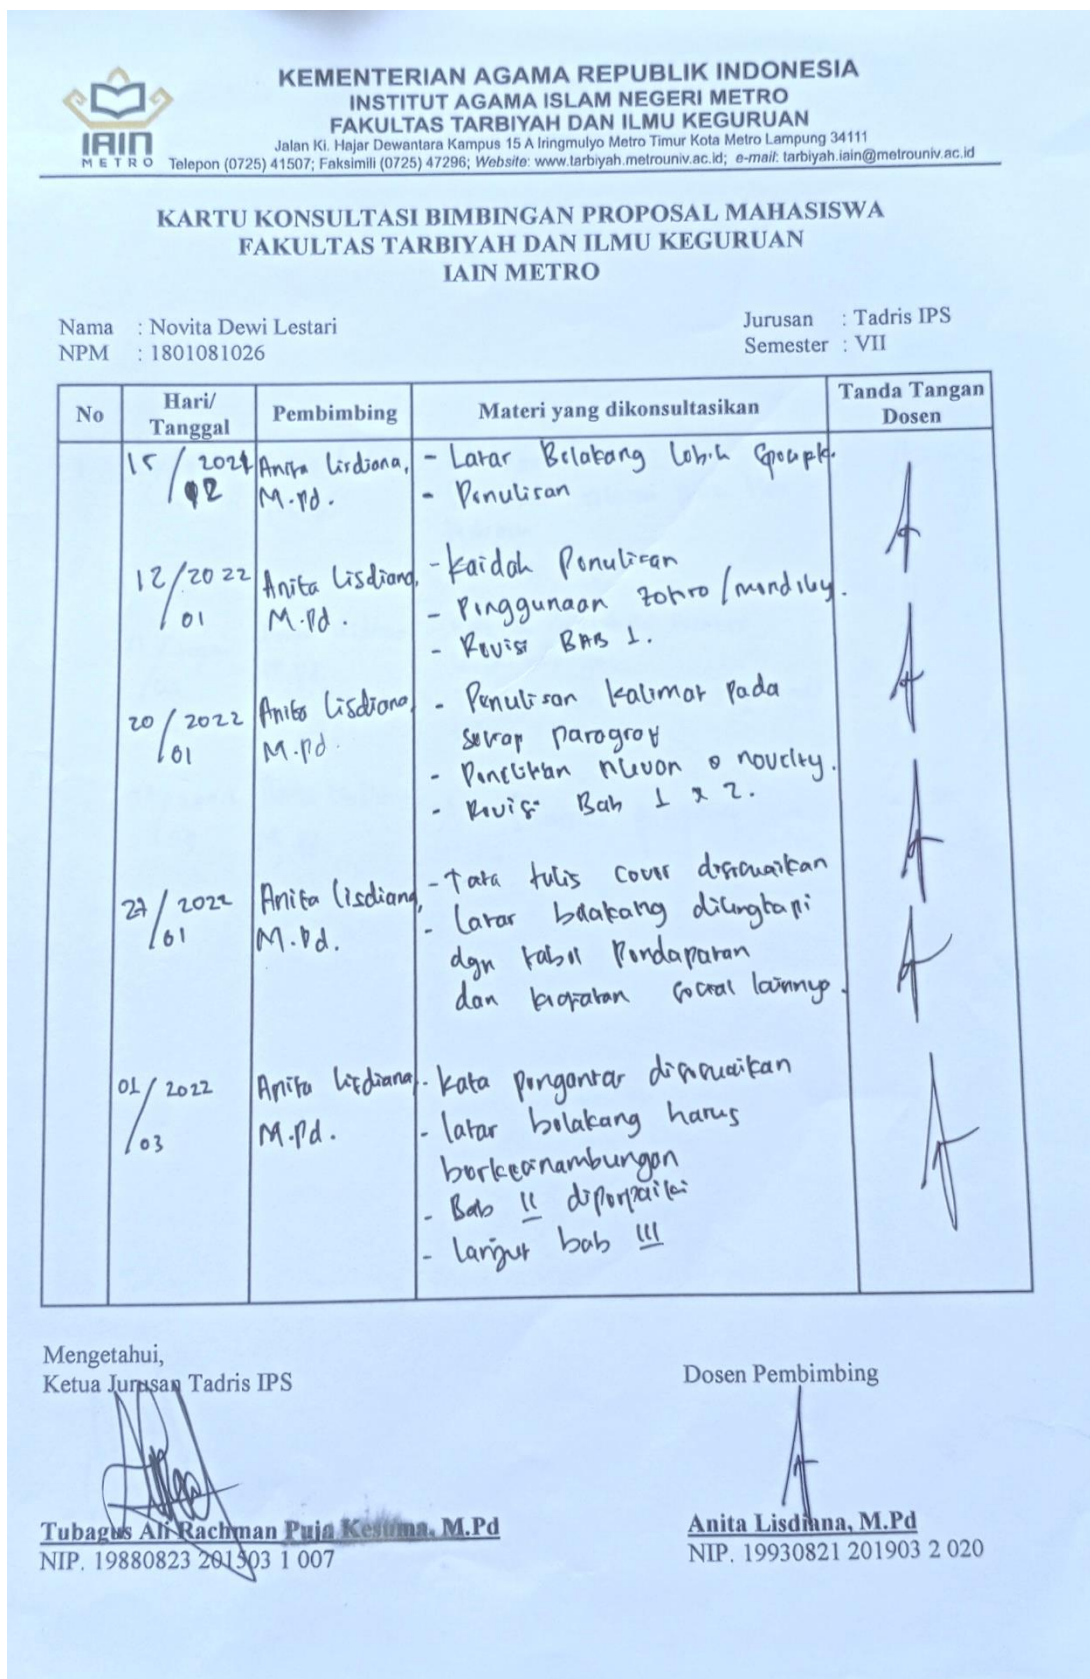 KEMENTERIAN AGAMA REPUBLIK INDONESIA
INSTITUT AGAMA ISLAM NEGERI METRO
FAKULTAS TARBIYAH DAN ILMU KEGURUAN
Jalan Ki. Hajar Dewantara Kampus 15 A Iringmulyo Metro Timur Kota Metro Lampung 34111
Telepon (0725) 41507; Faksimili (0725) 47296; Website: www.tarbiyah.metrouniv.ac.id; e-mail: tarbiyah.iain@metrouniv.ac.id
IAIN
METRO
KARTU KONSULTASI BIMBINGAN PROPOSAL MAHASISWA
FAKULTAS TARBIYAH DAN ILMU KEGURUAN
IAIN METRO
Nama : Novita Dewi Lestari
NPM : 1801081026
Jurusan : Tadris IPS
Semester : VII
No Hari/ Tanggal Pembimbing Materi yang dikonsultasikan Tanda Tangan Dosen
15/12 2021 Anita Lisdiana, M.Pd.
- Latar Belakang lebih
- Penulisan
12/01 2022 Anita Lisdiana, M.Pd.
- Kaidah Penulisan
- Penggunaan /mendeley.
- Revisi BAB 1.
20/01 2022 Anita Lisdiana, M.Pd.
- Penulisan kalimat pada
setiap paragraf
- Penelitian novelty.
- Revisi Bab 1 & 2.
27/01 2022 Anita Lisdiana, M.Pd.
- Tata tulis cover disesuaikan
- Latar belakang dilengkapi
dgn tabel Pendapatan
dan kegiatan social lainnya.
01/03 2022 Anita Lisdiana, M.Pd.
- Kata pengantar disesuaikan
- latar belakang harus
berkesinambungan
- Bab II diperbaiki
- lanjut bab III
Mengetahui,
Ketua Jurusan Tadris IPS
Tubagus Ali Rachman Puja Kesuma, M.Pd
NIP. 19880823 201503 1 007
Dosen Pembimbing
Anita Lisdiana, M.Pd
NIP. 19930821 201903 2 020